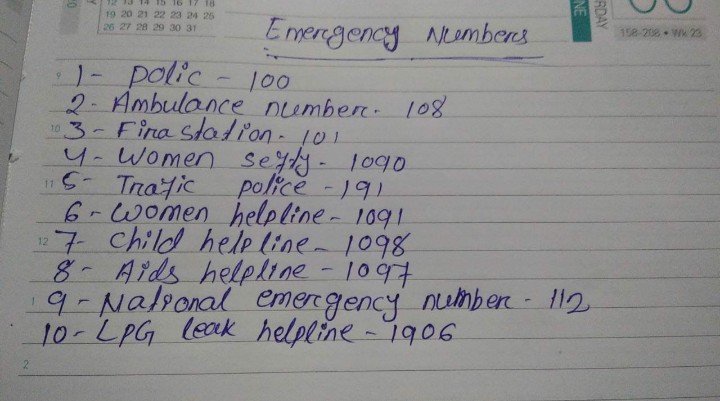 12 13 14 15 16 17 18
19 20 21 22 23 24 25
26 27 28 29 30 31
NE
RDAY
158-208 • Wk 23
Emergency Numbers
9 1- polic - 100
2- Ambulance number- 108
10 3- Fira station- 101
4- Women - 1090
11 5- Trafic police - 191
6- Women helpline - 1091
12 7- child helpline - 1098
8- Aids helpline - 1097
1 9- National emergency number - 112
10- LPG leak helpline - 1906
2